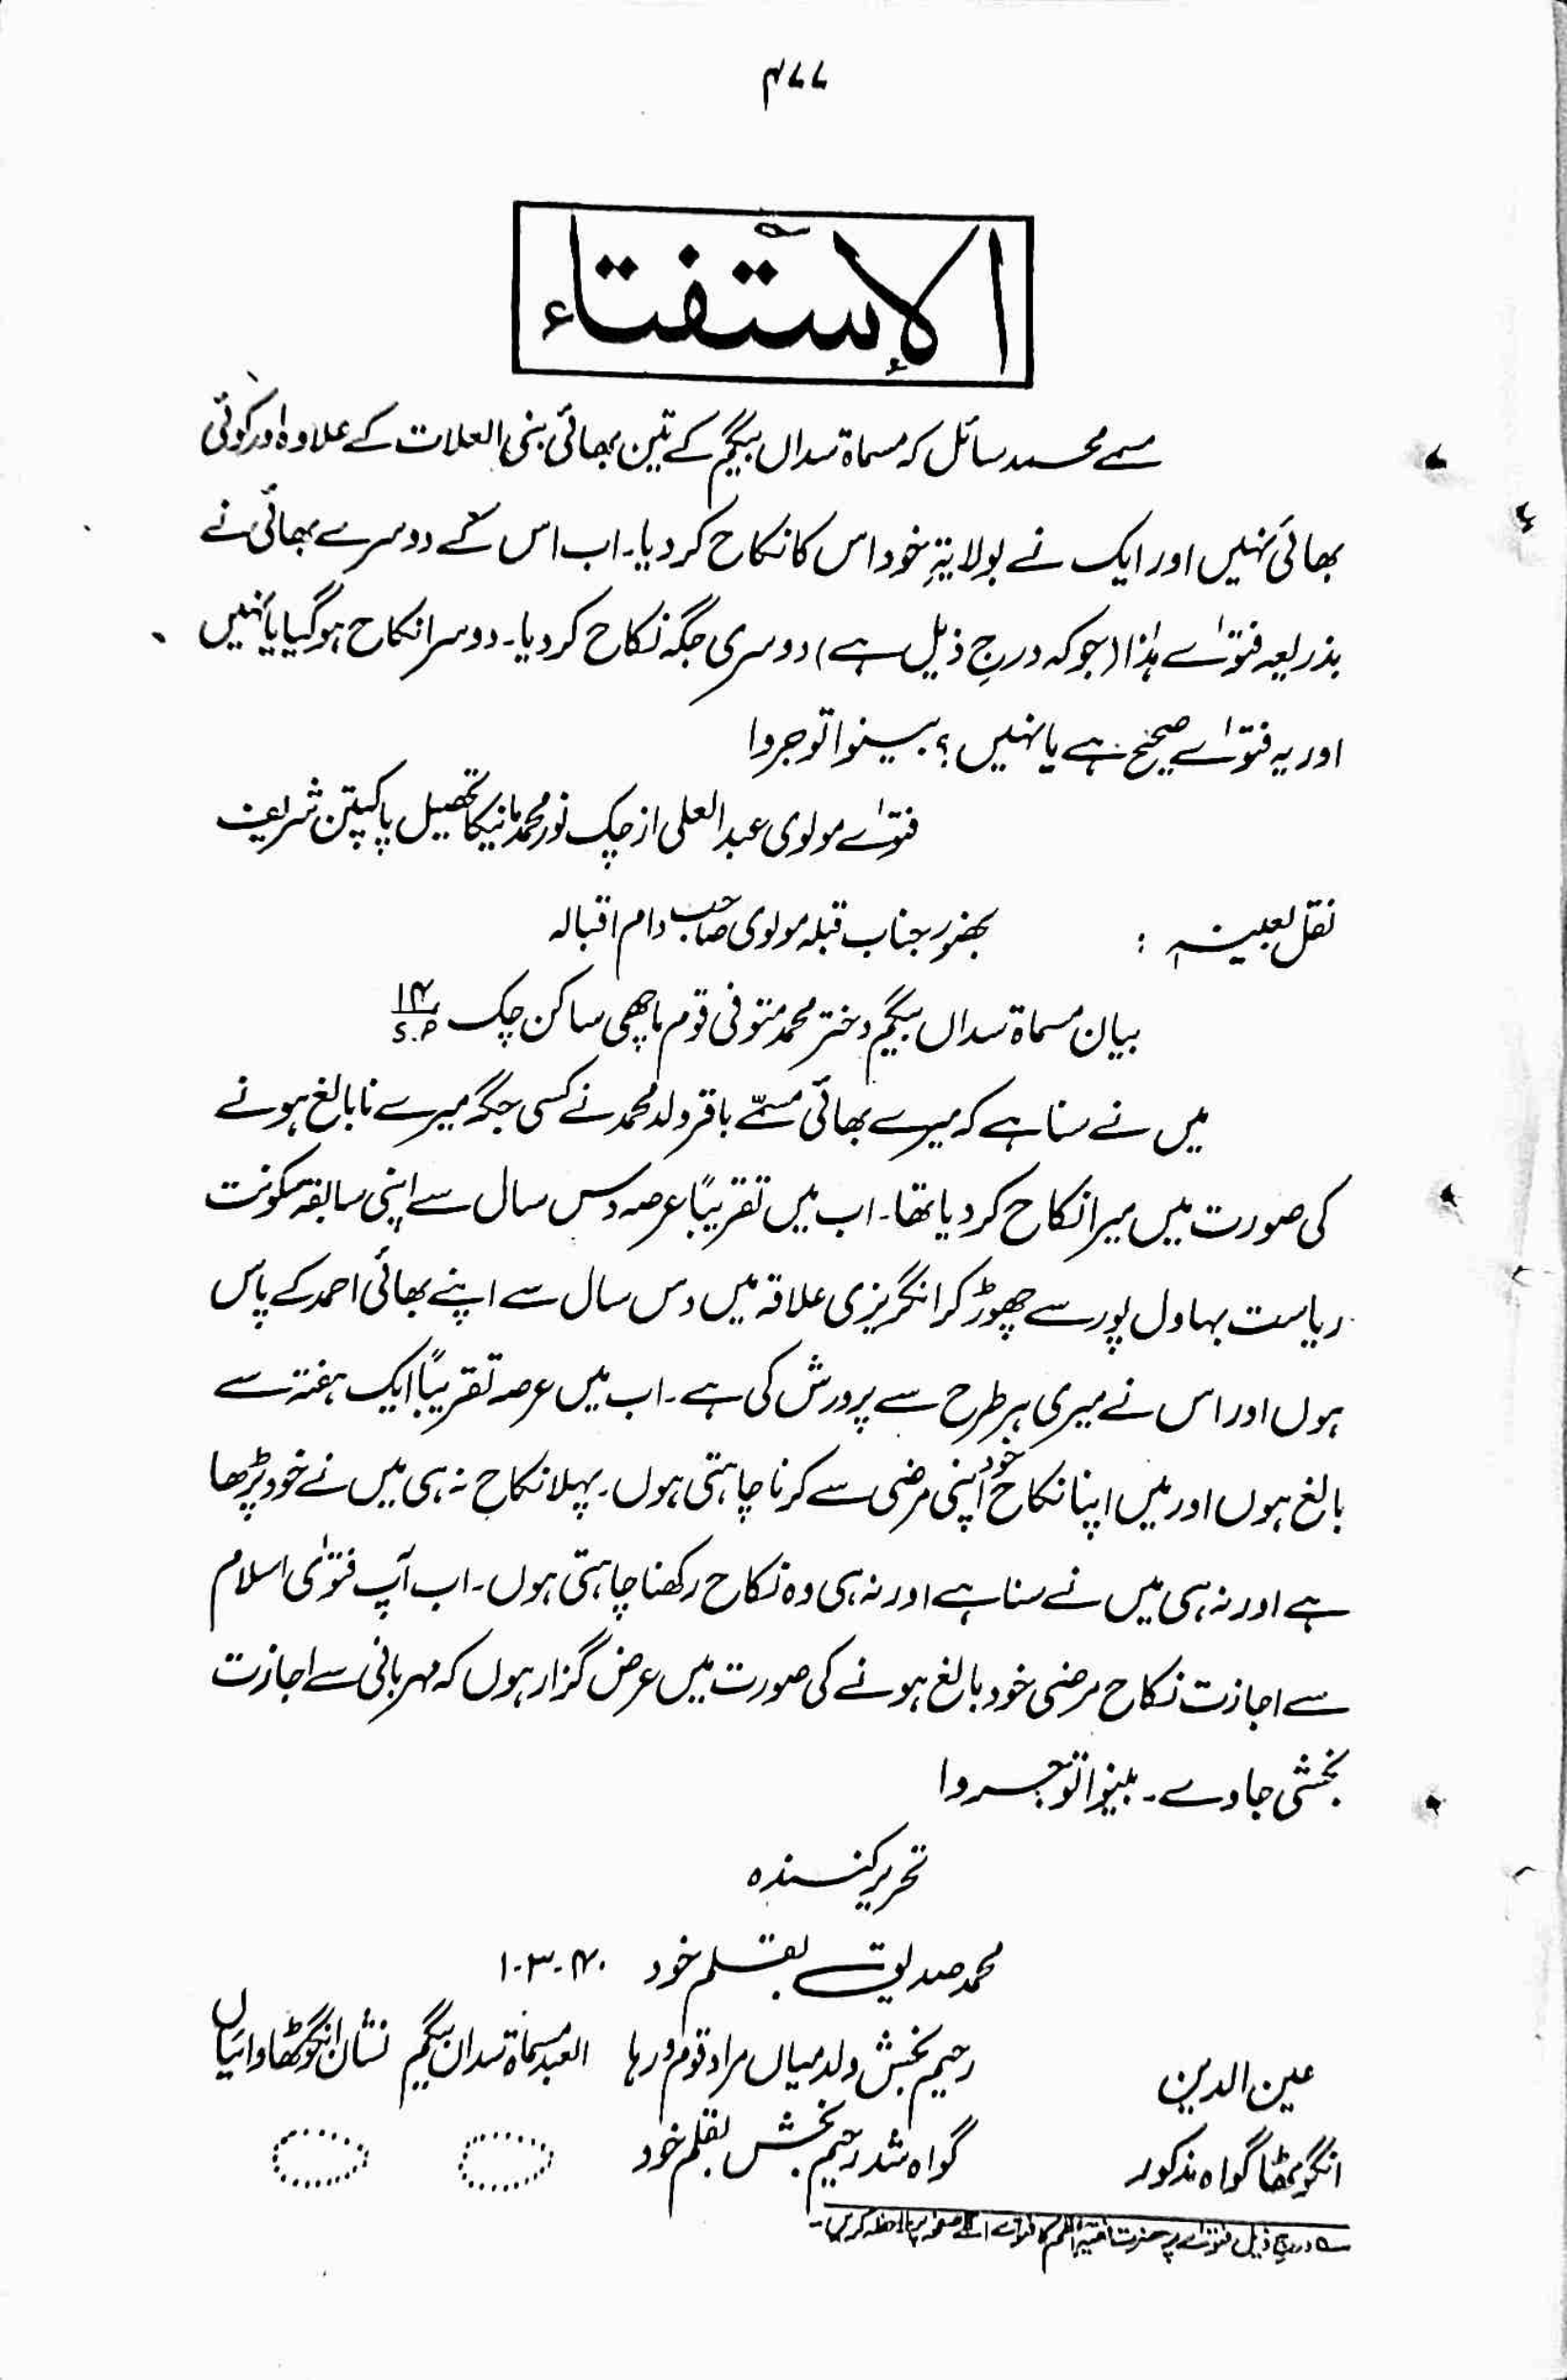 ۴۷۷
الإستفتاء
مسمے محمد سائل کہ مسماۃ سداں بیگم کے تین بھائی بنی العلات کے علاوہ اور کوئی
بھائی نہیں اور ایک نے بولایۃِ خود اس کا نکاح کر دیا۔ اب اس کے دوسرے بھائی نے
بذریعہ فتوٰے ہٰذا (جو کہ درجِ ذیل ہے) دوسری جگہ نکاح کر دیا۔ دوسرا نکاح ہو گیا یا نہیں
اور یہ فتوٰے صحیح ہے یا نہیں؟ بینوا توجروا
فتوٰے مولوی عبد العلی از چک نور محمد مانیکا تحصیل پاکپتن شریف
نقل بعینہٖ : بحضور جناب قبلہ مولوی صاحب دام اقبالہ
بیان مسماۃ سداں بیگم دختر محمد متوفی قوم ماچھی ساکن چک ۱۴/S.P
میں نے سنا ہے کہ میرے بھائی مسمّے باقر ولد محمد نے کسی جگہ میرے نابالغ ہونے
کی صورت میں میرا نکاح کر دیا تھا۔ اب میں تقریباً عرصہ دس سال سے اپنی سابقہ سکونت
ریاست بہاول پور سے چھوڑ کر انگریزی علاقہ میں دس سال سے اپنے بھائی احمد کے پاس
ہوں اور اس نے میری ہر طرح سے پرورش کی ہے۔ اب میں عرصہ تقریباً ایک ہفتہ سے
بالغ ہوں اور میں اپنا نکاح خود اپنی مرضی سے کرنا چاہتی ہوں۔ پہلا نکاح نہ ہی میں نے خود پڑھا
ہے اور نہ ہی میں نے سنا ہے اور نہ ہی وہ نکاح رکھنا چاہتی ہوں۔ اب آپ فتوٰی اسلام
سے اجازت نکاح مرضی خود بالغ ہونے کی صورت میں عرض گزار ہوں کہ مہربانی سے اجازت
بخشی جاوے۔ بینوا توجروا
تحریر کنندہ
محمد صدیق بقلم خود ۴۰-۳-۱۰
عین الدین رحیم بخش ولد میاں مراد قوم ورہا العبد مسماۃ سداں بیگم نشان انگوٹھا دائیاں
انگوٹھا گواہ مذکور گواہ شد رحیم بخش بقلم خود
درج ذیل فتوٰے پر حضرت فقیہ اعظم کا فتوٰے اگلے صفحہ پر ملاحظہ کریں۔